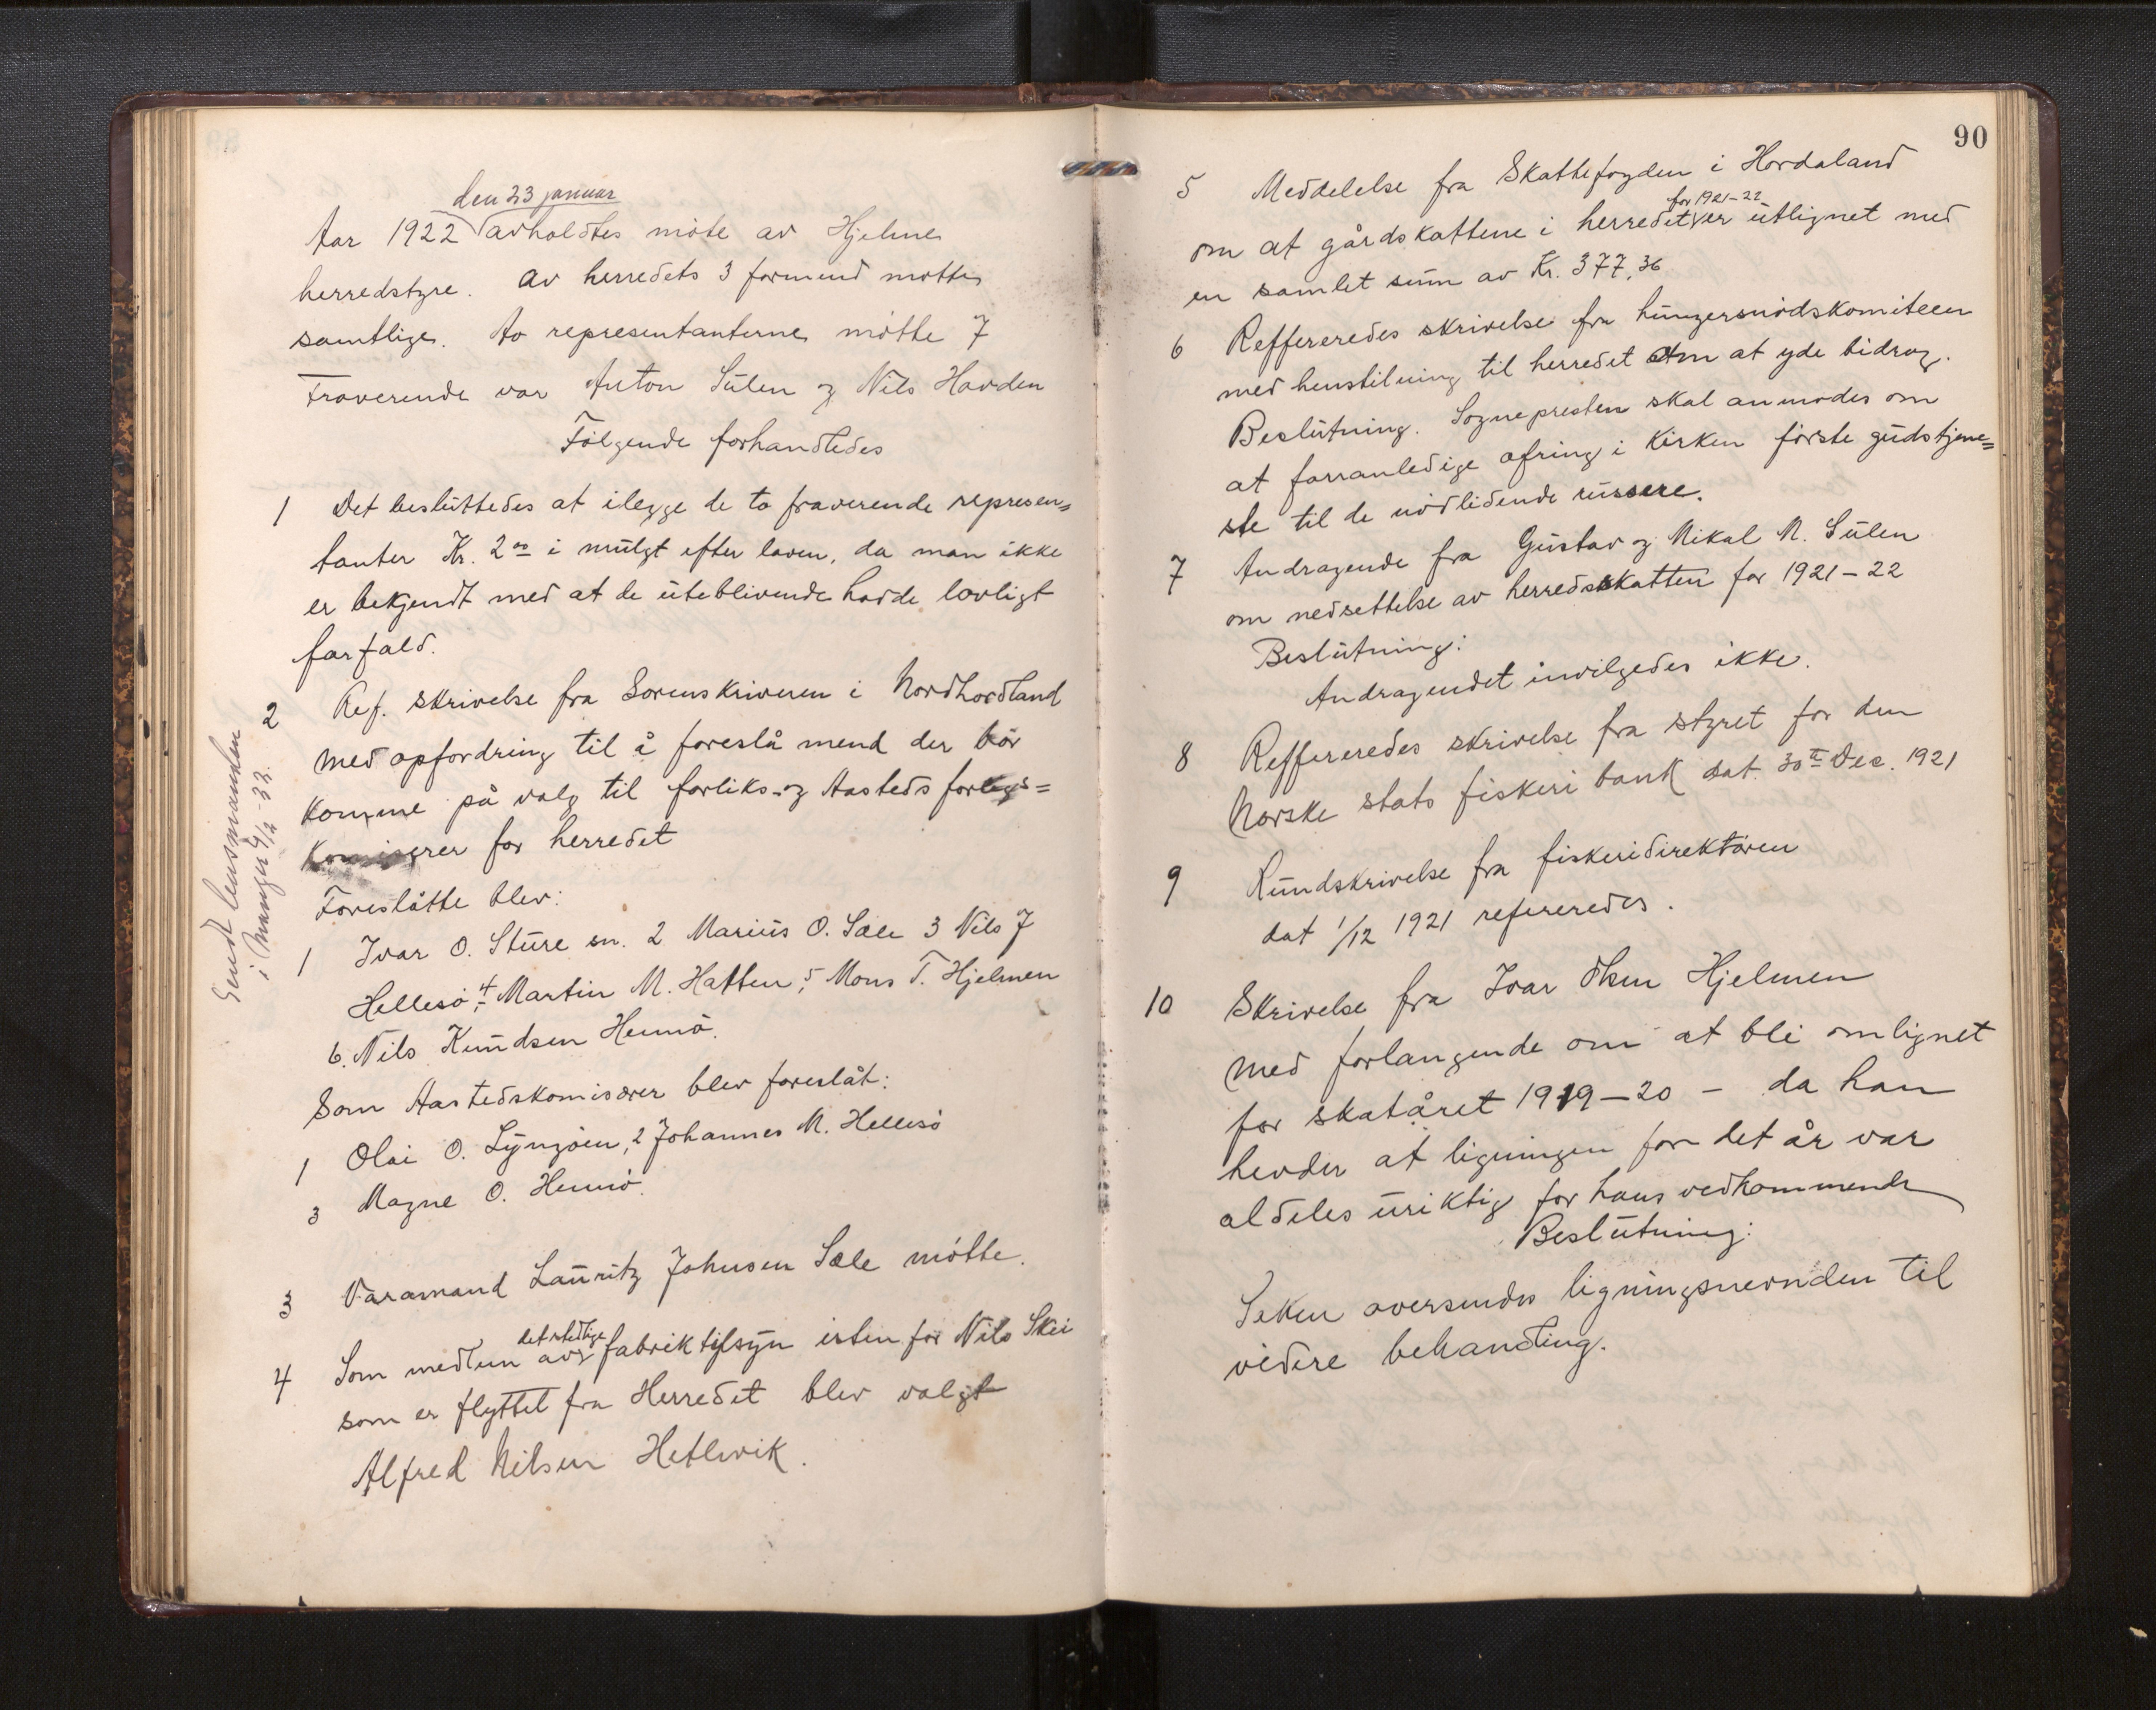 den 23 januar
Aar 1922 avholdtes møte av Hjelme
herredstyre. av herredets 3 formend møtte
samtlige. Av representanterne møtte 7
Fraverende var Anton Sülen og Nils Havden
Følgende forhandledes
1 Det besluttedes at ilegge de to fraverende represen=
tanter Kr. 2 00 i mulgt efter loven, da man ikke
er bekjendt med at de uteblivende hadde lovligt
forfald.
2 Ref. skrivelse fra Sorenskriveren i Nordhordland
med opfordring til å foreslå mend der bör
komme på valg til forliks- og Aasteds
for herredet
Foreslåtte blev:
1 Ivar O. Sture sn. 2 Marius O. Sæle 3 Nils J
Hellesö, 4 Martin M. Hatten, 5 Mons T. Hjelmen
6. Nils Knudsen Hernö.
Som Aastedskomisærer blev foreslåt:
1 Olai O. Lyngöen, 2 Johannes M. Hellesö
3 Magne O. Hernö.
3 Varamand Lauritz Johnsen Sæle mötte.
4 Som medlem av det stedlige fabriktilsyn isten for Nils Skei
som er flyttet fra Herredet blev valgt
Alfred Nilsen Hetlevik.
Sendt lensmanden
i Manger 9/2-22.
90
5 Meddelelse fra Skattefogden i Hordaland
om at gårdskattene i herredet for 1921-22 er utlignet med
en samlet sum av Kr. 377,36
6 Reffereredes skrivelse fra hungersnödskomiteen
med henstilning til herredet om at yde bidrag.
Beslutning. Sognepresten skal anmodes om
at forranledige ofring i Kirken förste gudstjene=
ste til de nödlidende russere.
7 Andragende fra Gustav og Mikal N. Sülen
om nedsettelse av herredsskatten for 1921-22
Beslutning:
Andragendet invilgedes ikke.
8 Reffereredes skrivelse fra styret for den
Norske stats fiskeri bank dat. 30te Dec. 1921
9 Rundskrivelse fra fiskeridirektören
dat 1/12 1921 refereredes.
10 Skrivelse fra Ivar Olsen Hjelmen
med forlangende om at bli omlignet
for skatåret 1919-20 - da han
hevder at ligningen for det år var
aldeles uriktig for hans vedkommende
Beslutning:
Seken oversendes ligningsnevnden til
videre behandling.